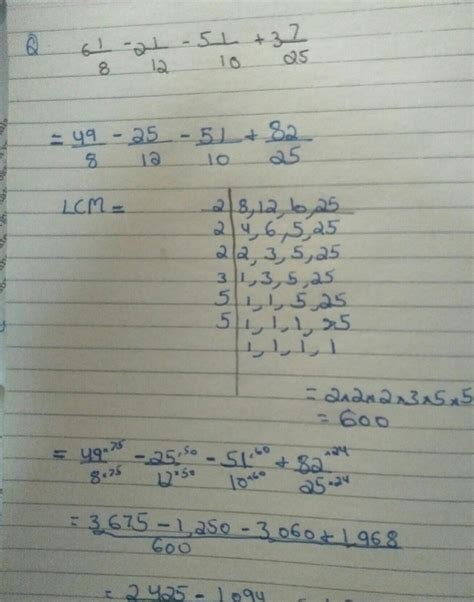 Q 6 1/8 - 2 1/12 - 51/10 + 3 7/25
= 49/8 - 25/12 - 51/10 + 82/25
LCM =
2 | 8, 12, 10, 25
2 | 4, 6, 5, 25
2 | 2, 3, 5, 25
3 | 1, 3, 5, 25
5 | 1, 1, 5, 25
5 | 1, 1, 1, 5
1, 1, 1, 1
= 2×2×2×3×5×5
= 600
= 49×75/8×75 - 25×50/12×50 - 51×60/10×60 + 82×24/25×24
= 3,675 - 1,250 - 3,060 + 1,968/600
= 2425 - 1094